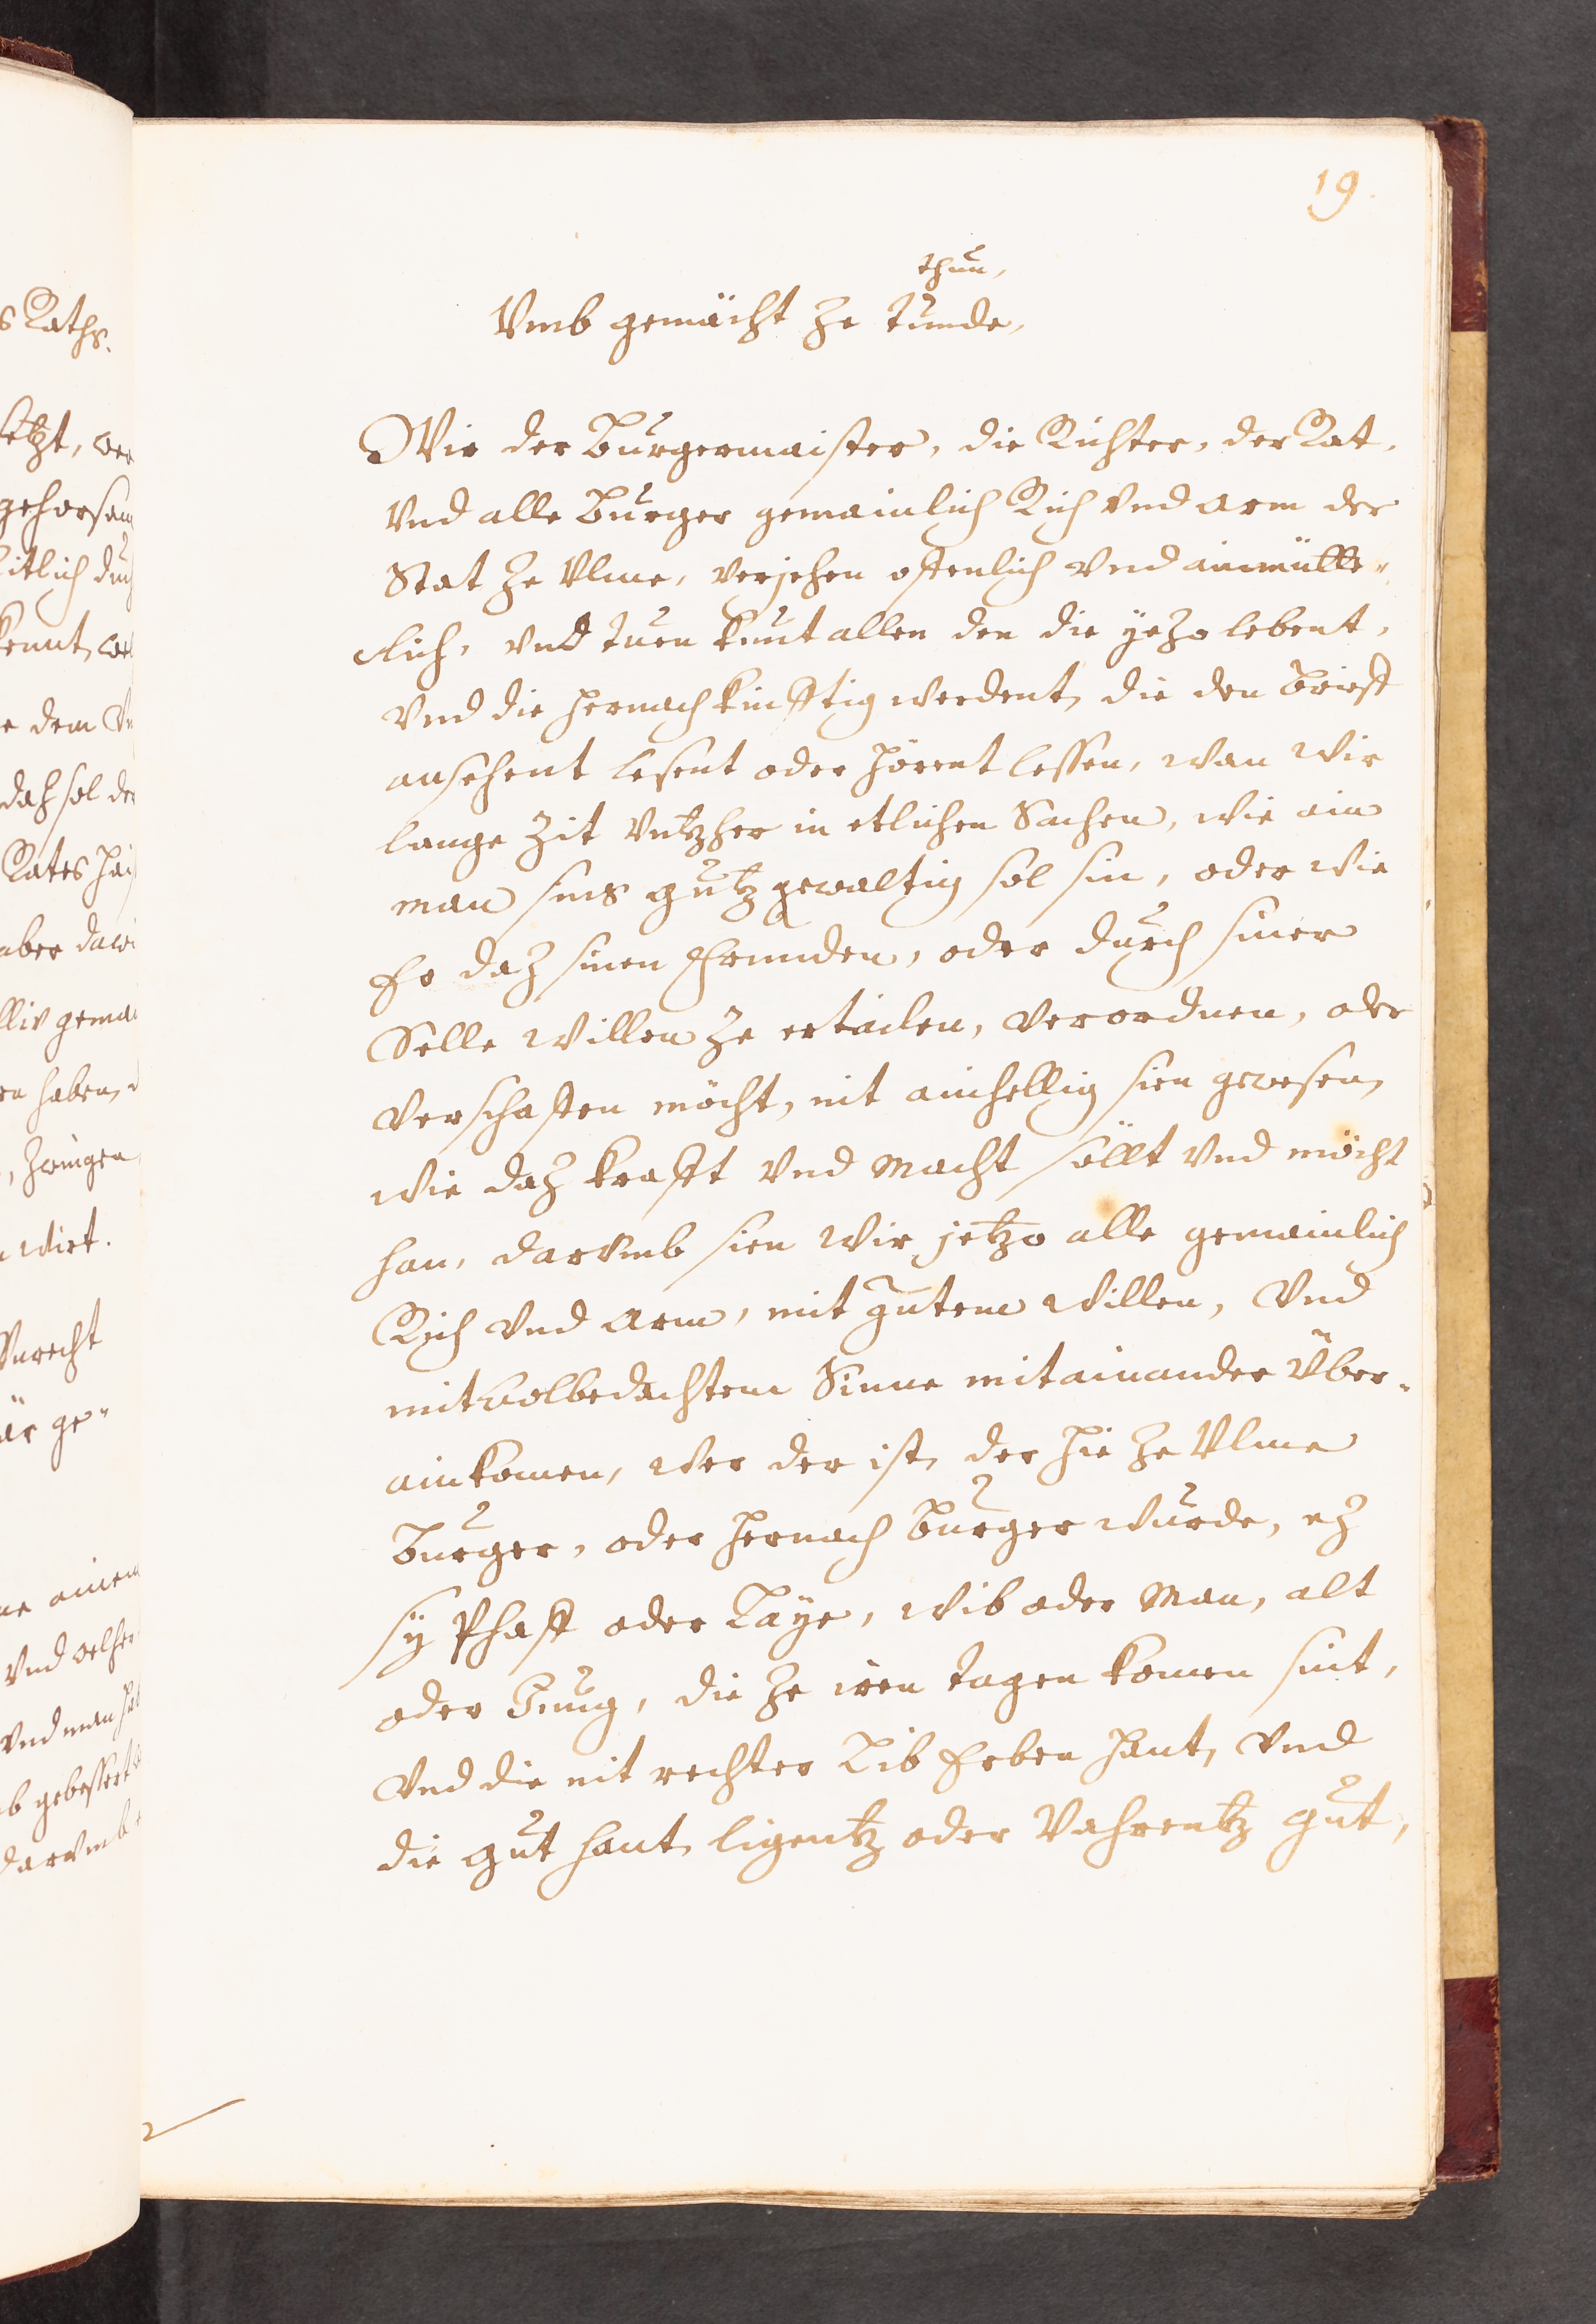 s Raths.
setzt, wer
gehorsam
kennt, wel
e dem
daz sol der
Rates
aber dawi
gema
en haben,
, zwingen
wirt.
Vnrecht
är ge-
ainem
Vnd
Vnd man
gebessert
darvmb
19.
thun,
Vmb gemächt ze tunde,
Wir der Burgermaister, die Richter, der Rat,
Vnd alle Burger gemainlich Rich vnd arm der
Stat ze Vlme, verjehen offenlich vnd ainmütte-
clich, vnd tuen kunt allen den die yezo lebent,
Vnd die hernach kinfftig werdent, die den brieff
ansehent lesent oder hörent lessen, wan wir
lange Zit vntzher in etlichen Sachen, wie ain
man sins gutz gewaltig sol sin, oder wie
Er daz sinen Frunden, oder durch siner
Selle willen ze ertailen, verordnen, oder
verschaffen möcht, nit ainhellig sien gewesen,
wie daz krafft vnd Macht söllt vnd möcht
han, darvmb sien wir jetzo alle gemainlich
Rich vnd arm, mit gutem willen, Vnd
mit volbedachtem Sinne mitainander über-
ainkomen, wer der ist, der hie ze Vlme
burger, oder hernach burger wurde, ez
sÿ Phaff oder Laye, wib oder Man, alt
oder Jung, die ze iren tagen komen sint,
Vnd die nit rechter Lib Erben hant, Vnd
die gut hant, ligentz oder Vahrentz gut,